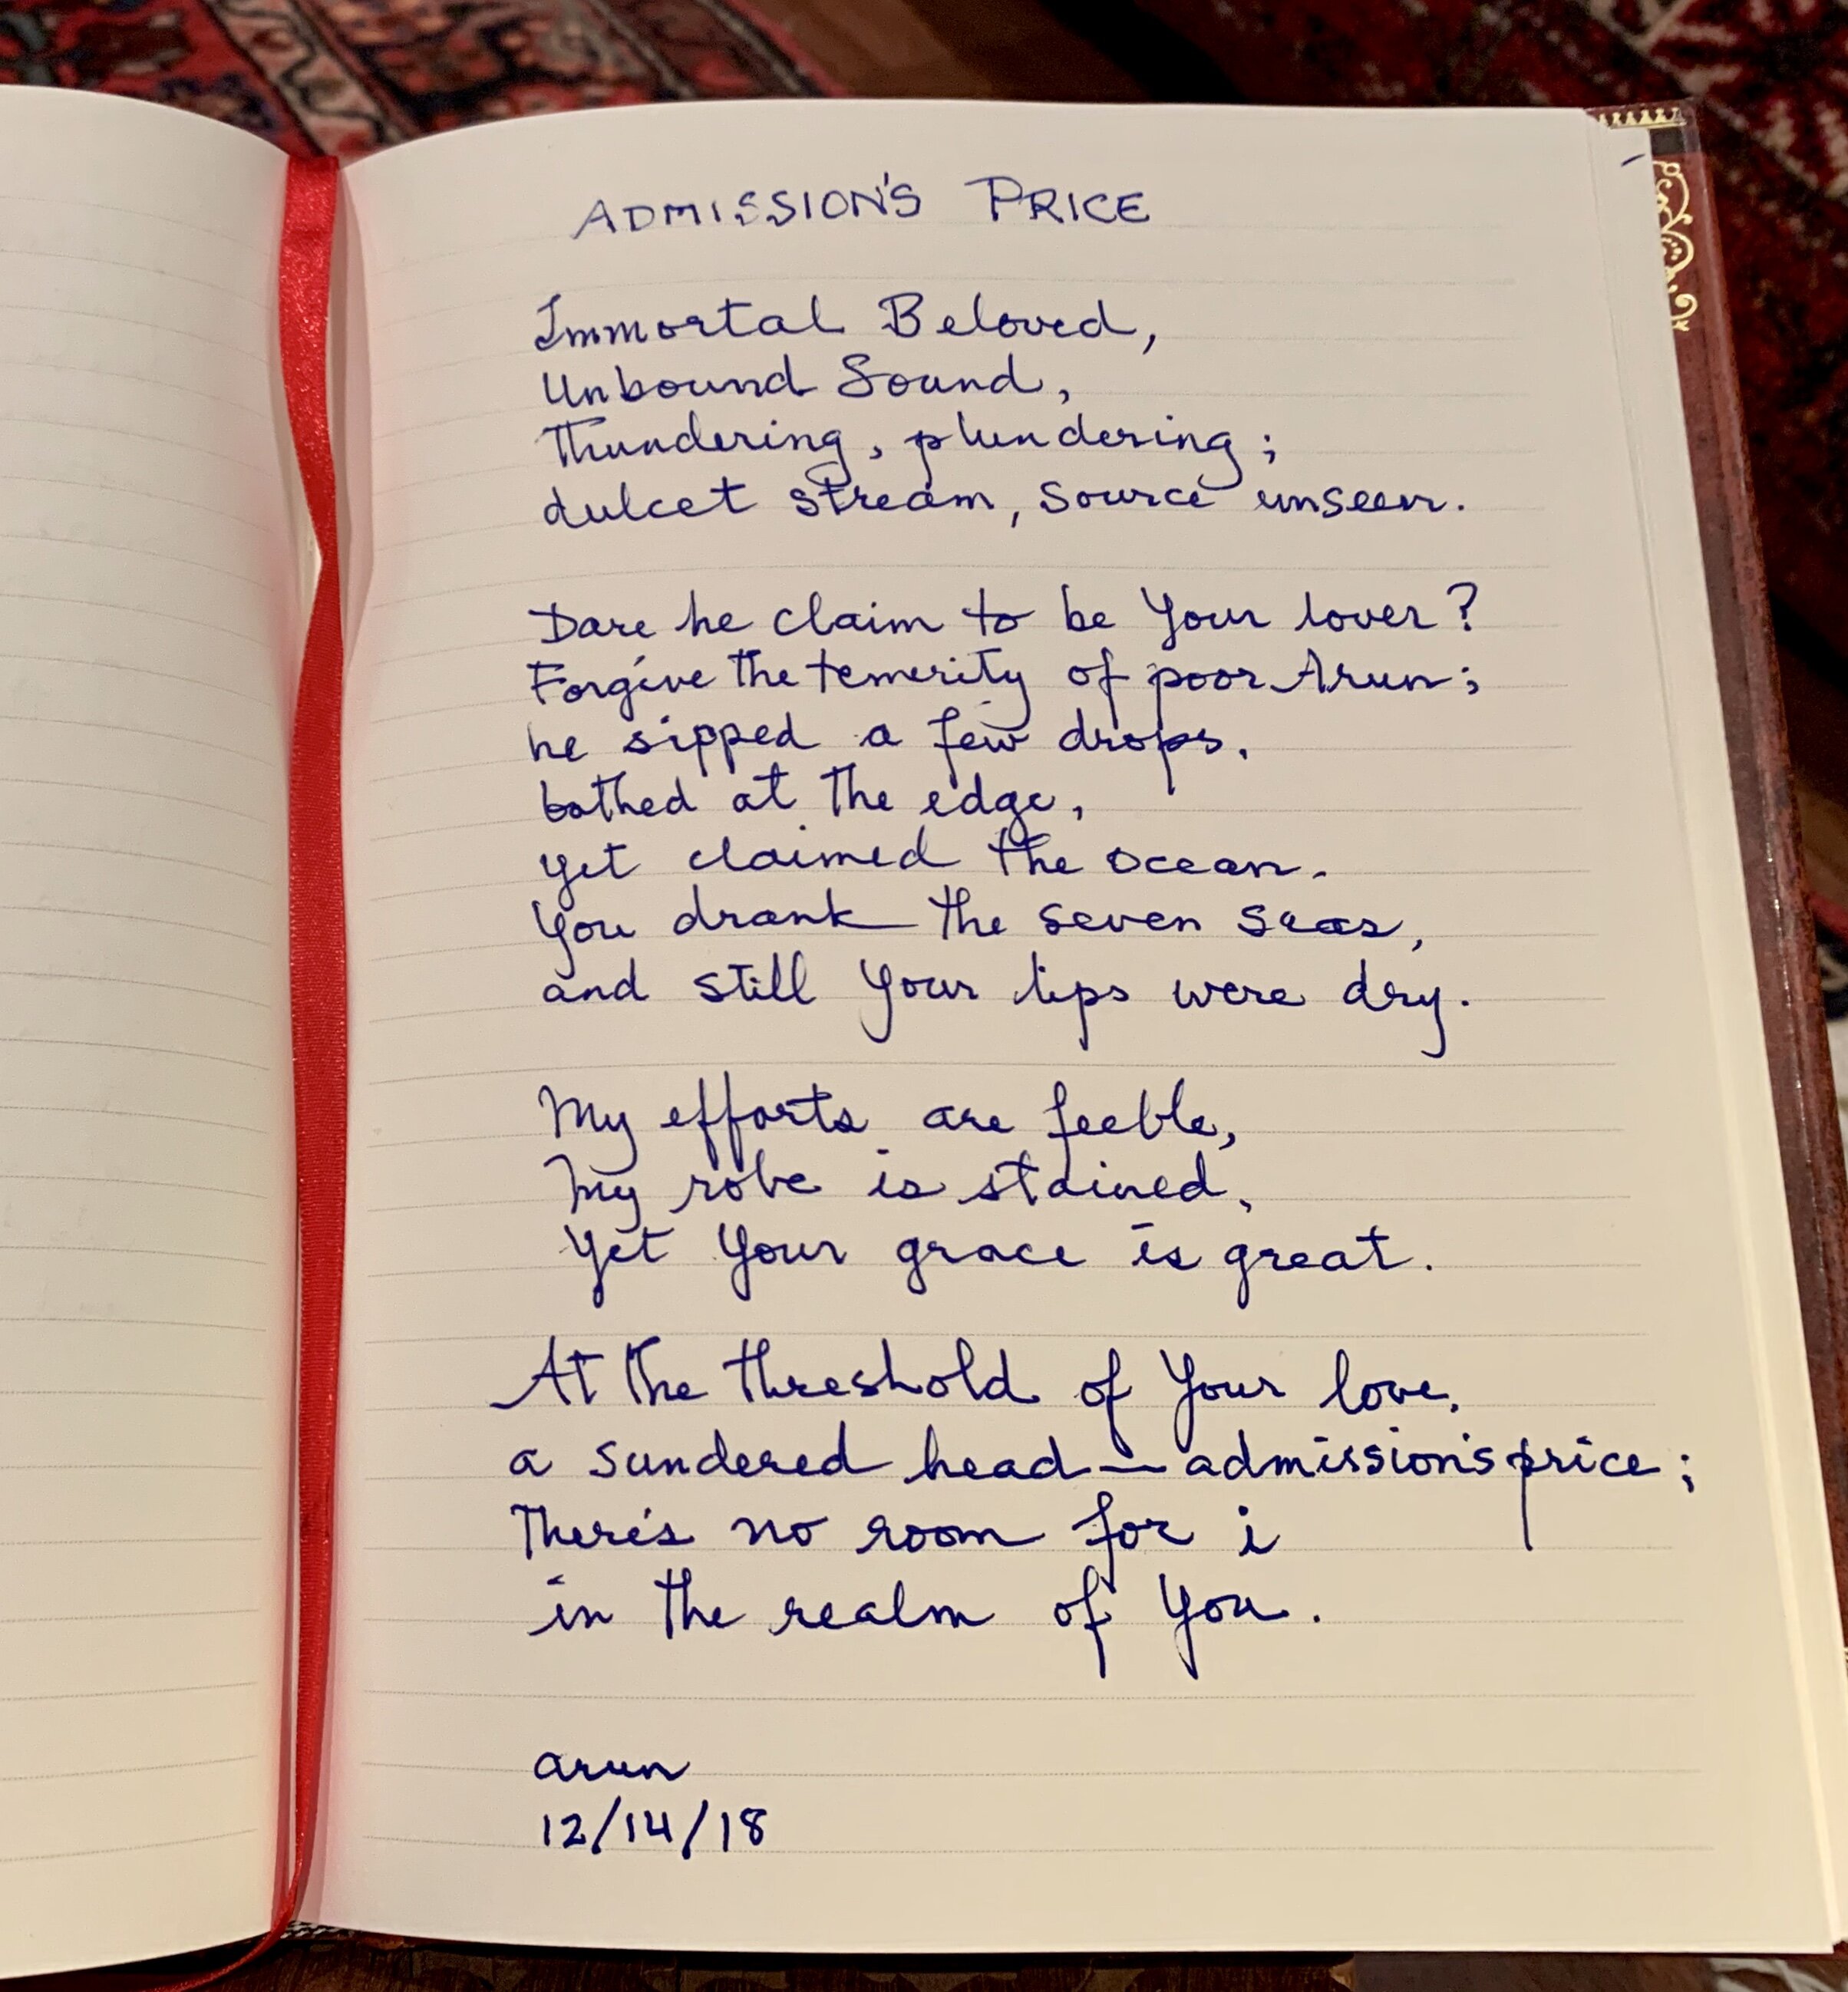 ADMISSION'S PRICE
Immortal Beloved,
Unbound Sound,
Thundering, plundering;
dulcet stream, source unseen.
Dare he claim to be Your lover?
Forgive the temerity of poor Arun;
he sipped a few drops,
bathed at the edge,
yet claimed the ocean.
You drank the seven seas,
and still Your lips were dry.
My efforts are feeble,
my robe is stained,
Yet Your grace is great.
At the threshold of Your love,
a sundered head — admission's price;
There's no room for i
in the realm of You.
arun
12/14/18